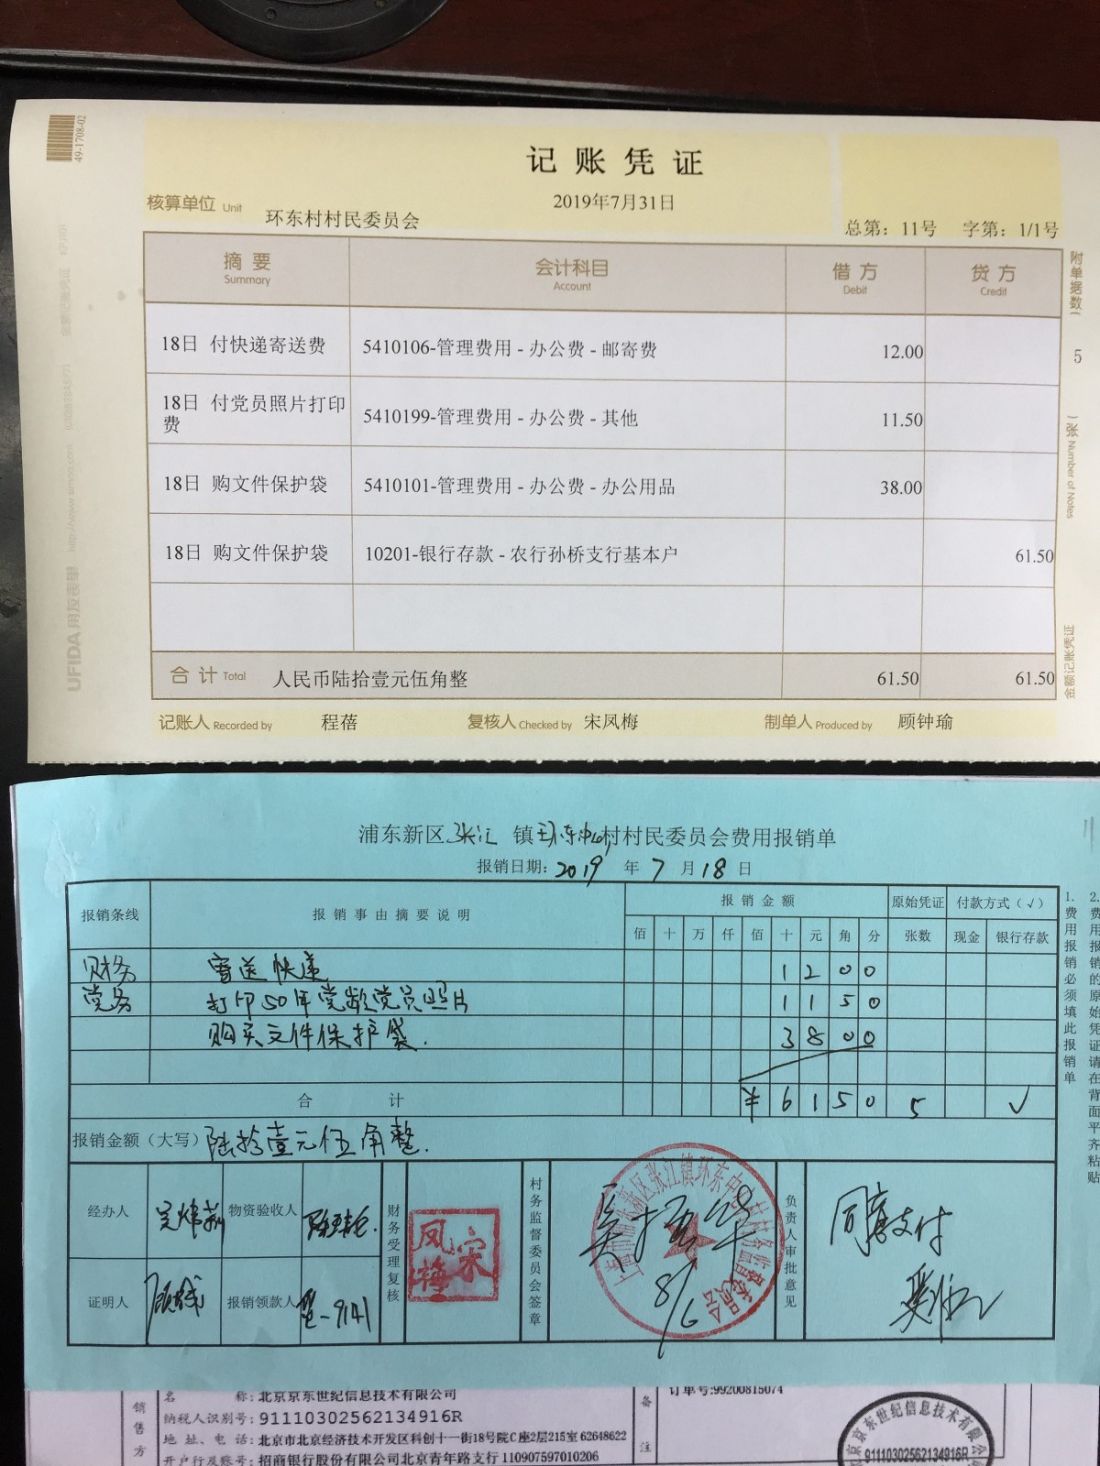 49-1708-02
记账凭证
2019年7月31日
核算单位 Unit 环东村村民委员会
总第：11号 字第：1/1号
摘要 会计科目 借方 贷方
Summary Account Debit Credit
18日 付快递寄送费 5410106-管理费用 - 办公费 - 邮寄费 12.00
18日 付党员照片打印费 5410199-管理费用 - 办公费 - 其他 11.50
18日 购文件保护袋 5410101-管理费用 - 办公费 - 办公用品 38.00
18日 购文件保护袋 10201-银行存款 - 农行孙桥支行基本户 61.50
合计 Total 人民币陆拾壹元伍角整 61.50 61.50
记账人 Recorded by 程蓓 复核人 Checked by 宋凤梅 制单人 Produced by 顾钟瑜
附单据数（ 5 张） Number of Notes
金额记账凭证
UFIDA 用友表单
浦东新区张江镇环东中心村村民委员会费用报销单
报销日期：2019年7月18日
报销条线 报销事由摘要说明 报销金额 原始凭证 付款方式（√）
佰 十 万 仟 佰 十 元 角 分 张数 现金 银行存款
财务 寄送快递 1 2 0 0
党务 打印50年党龄党员照片 1 1 5 0
购买文件保护袋. 3 8 0 0
合计 ¥ 6 1 5 0 5 √
报销金额（大写）陆拾壹元伍角整.
经办人 物资验收人
证明人 报销领款人
财务受理复核
宋凤梅
村务监督委员会签章
8/6
负责人审批意见
同意支付
1.费用报销必须填此报销单
2.费用报销的原始凭证请在背面平齐粘贴
销售方
名称：北京京东世纪信息技术有限公司
纳税人识别号：91110302562134916R
地址、电话：北京市北京经济技术开发区科创十一街18号院C座2层215室 62648622
开户行及账号：招商银行股份有限公司北京青年路支行 110907597010206
备注
订单号:99200815074
北京京东世纪信息技术有限公司
91110302562134916R